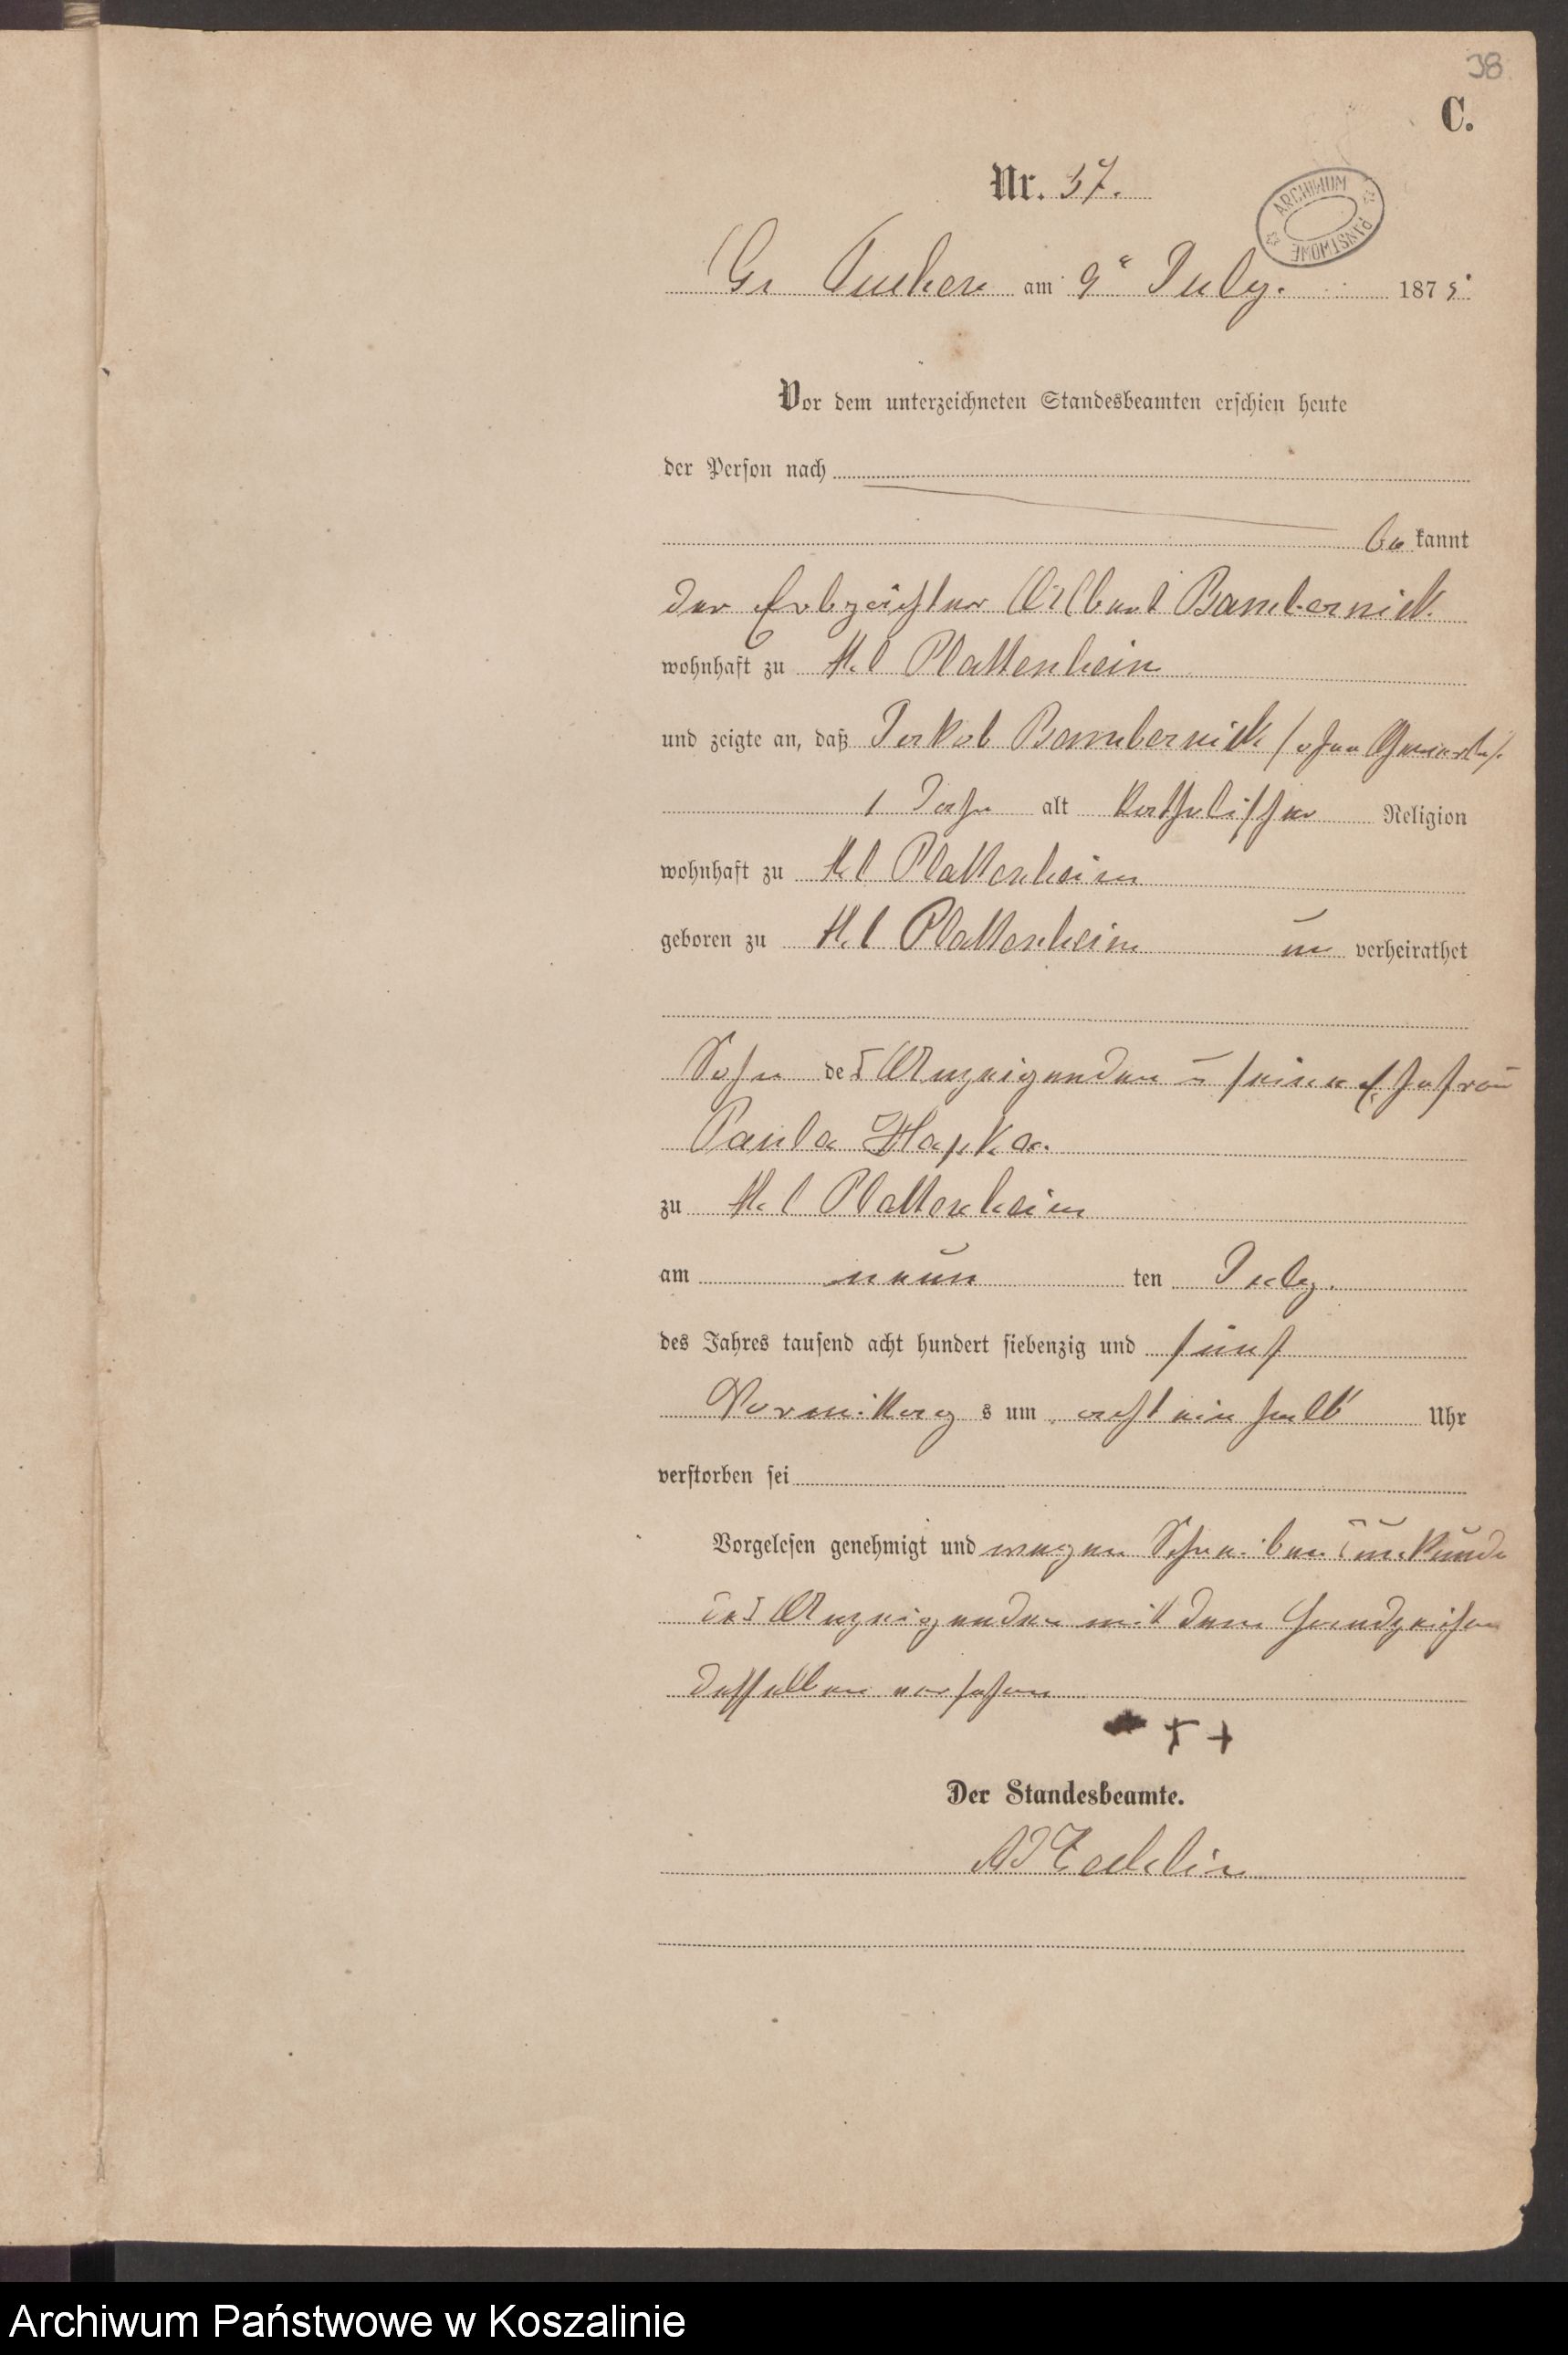 38
C.
Nr. 37.
ARCHIWUM PAŃSTWOWE
Gr Tuchen am 9t July. 1875.
Vor dem unterzeichneten Standesbeamten erschien heute
der Person nach
be kannt
der Erbpächter Albert Bambernick
wohnhaft zu Kl Plattenheim
und zeigte an, daß Jakob Bambernick /ohne Gewerbe/
1 Jahr alt katholischer Religion
wohnhaft zu Kl Plattenheim
geboren zu Kl Plattenheim un verheirathet
Sohn des Anzeigenden u seiner Ehefrau
Paula
zu Kl Plattenheim
am neun ten July.
des Jahres tausend acht hundert siebenzig und fünf
Vormittag s um acht ein halb Uhr
verstorben sei
Vorgelesen genehmigt und wegen Schreibensunkunde
des Anzeigenden mit dem Handzeichen
desselben versehen
+ +
Der Standesbeamte.
Archiwum Państwowe w Koszalinie